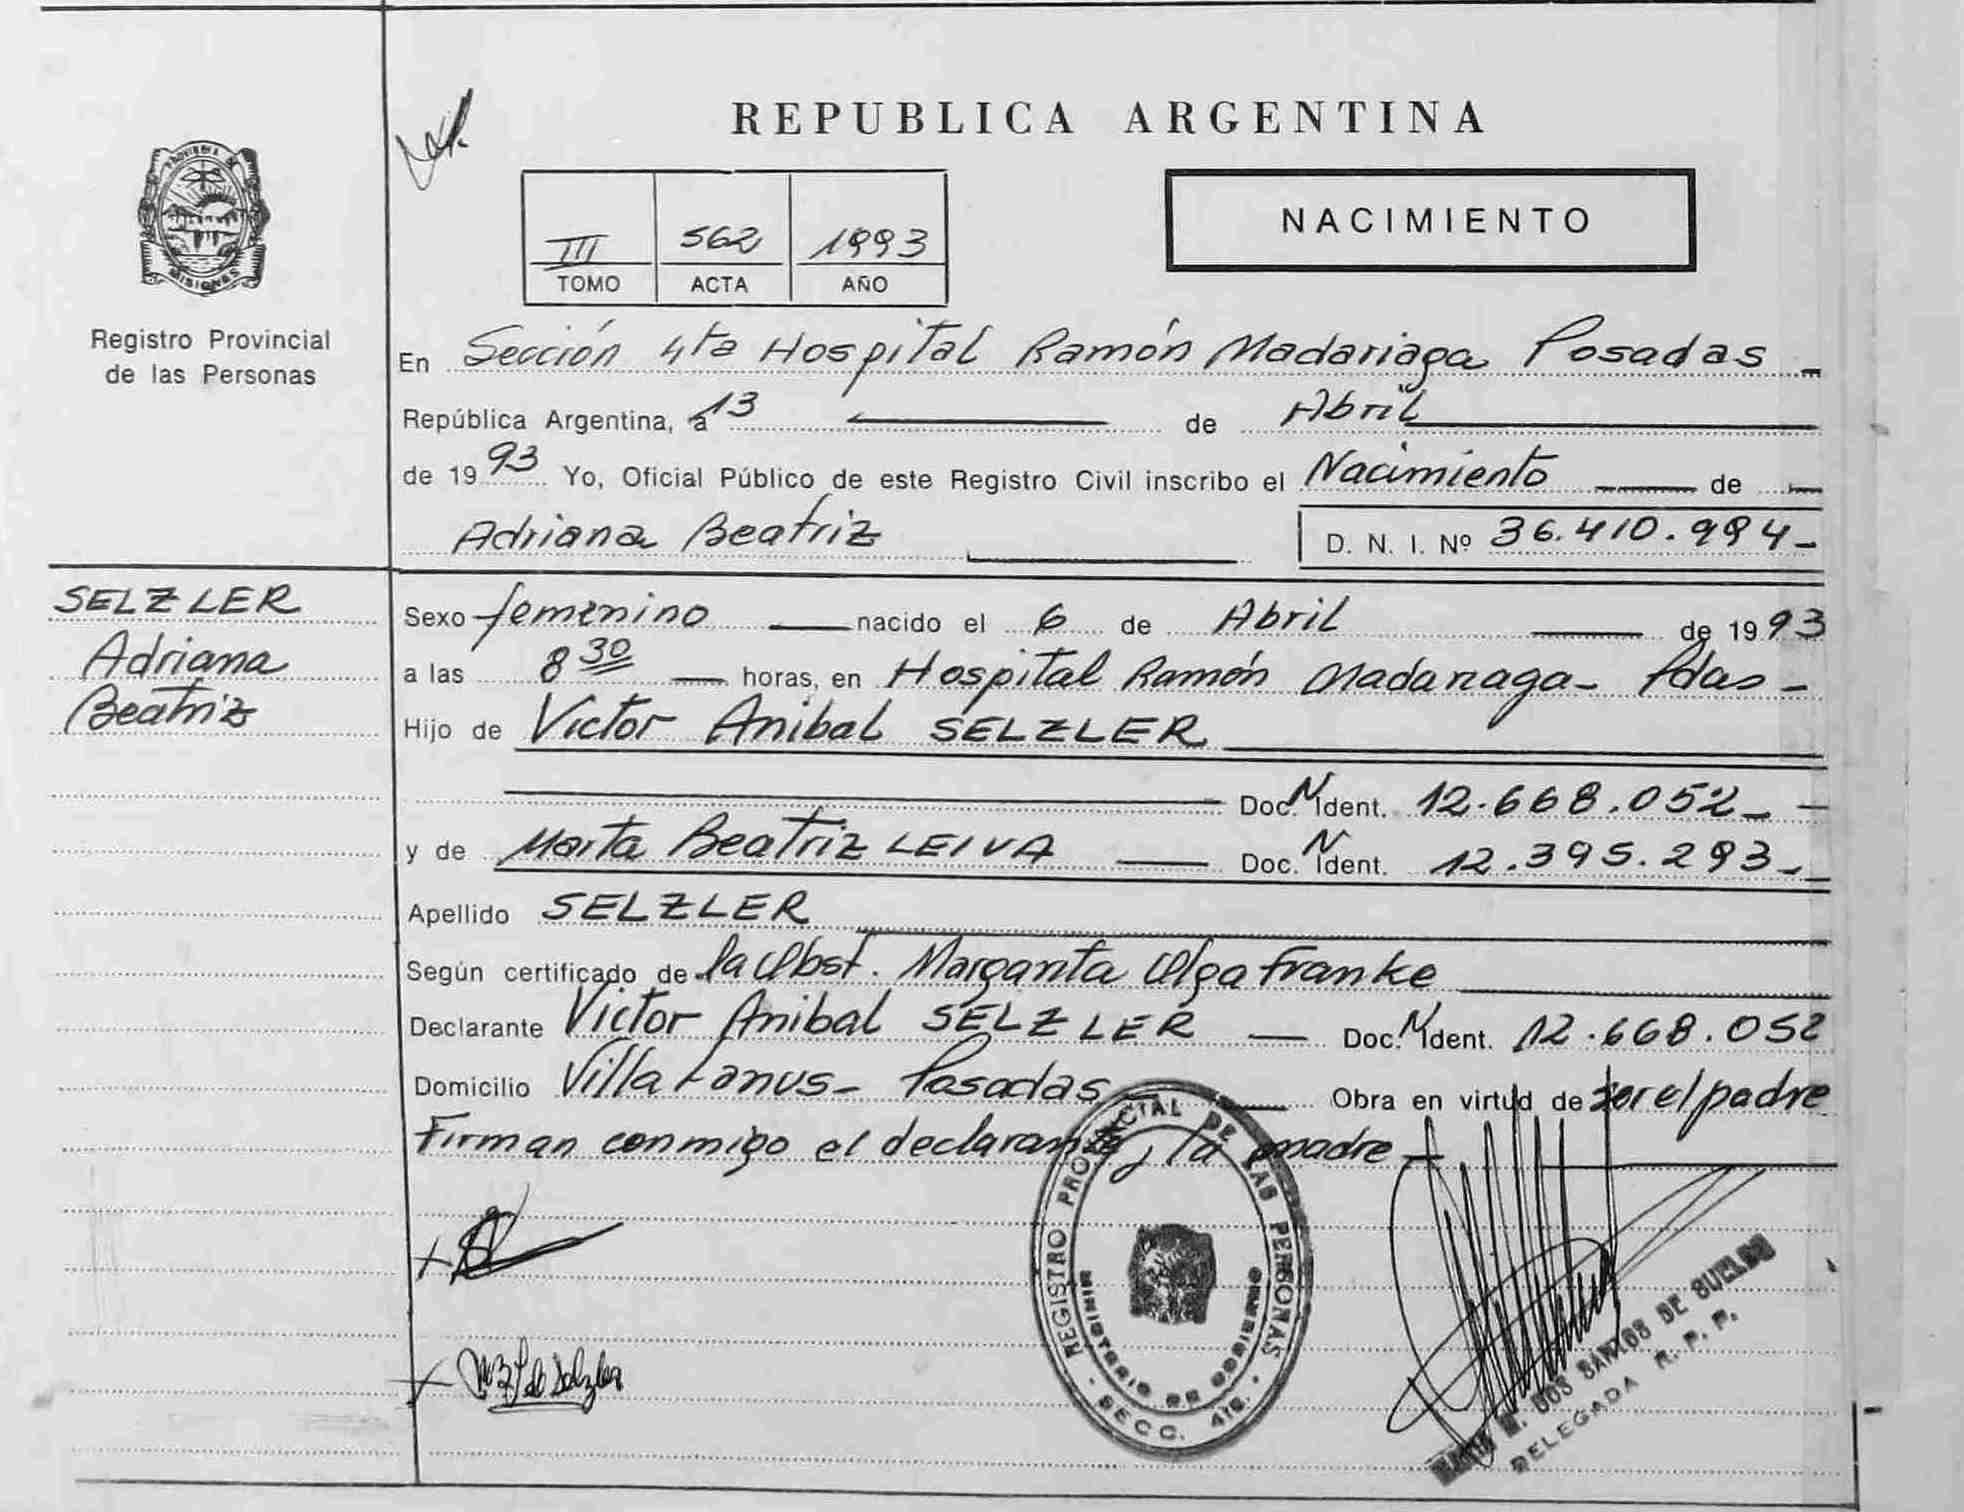 REPUBLICA ARGENTINA
PROVINCIA DE
MISIONES
Registro Provincial
de las Personas
III 562 1993
TOMO ACTA AÑO
NACIMIENTO
En Sección 4ta Hospital Ramón Madariaga Posadas
República Argentina, a 13 de Abril
de 1993 Yo, Oficial Público de este Registro Civil inscribo el Nacimiento de
Adriana Beatriz D. N. I. Nº 36.410.994-
SELZLER
Adriana
Beatriz
Sexo femenino nacido el 6 de Abril de 1993
a las 8 30 horas, en Hospital Ramón Madariaga- Pdas-
Hijo de Victor Anibal SELZLER
Doc. N Ident. 12.668.052-
y de Marta Beatriz LEIVA Doc. N Ident. 12.395.293-
Apellido SELZLER
Según certificado de la Obst. Margarita Olga Franke
Declarante Victor Anibal SELZLER Doc. N Ident. 12.668.052
Domicilio Villa Lanus- Posadas Obra en virtud de ser el padre
Firman conmigo el declarante y la madre
REGISTRO PROVINCIAL DE LAS PERSONAS
MINISTERIO DE GOBIERNO
SECC. 4ta.
DOS SANTOS DE SUELDO
DELEGADA R. P. P.